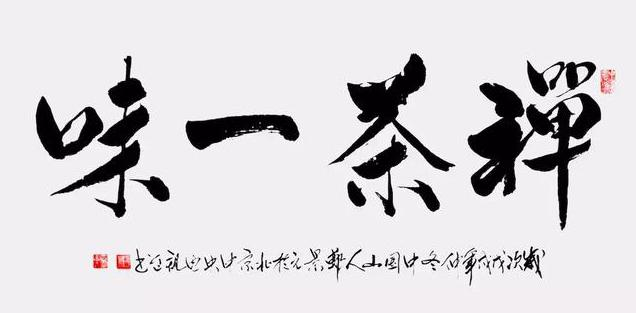 禪茶一味
歲次戊戌年仲冬中国山人景元於北京中央